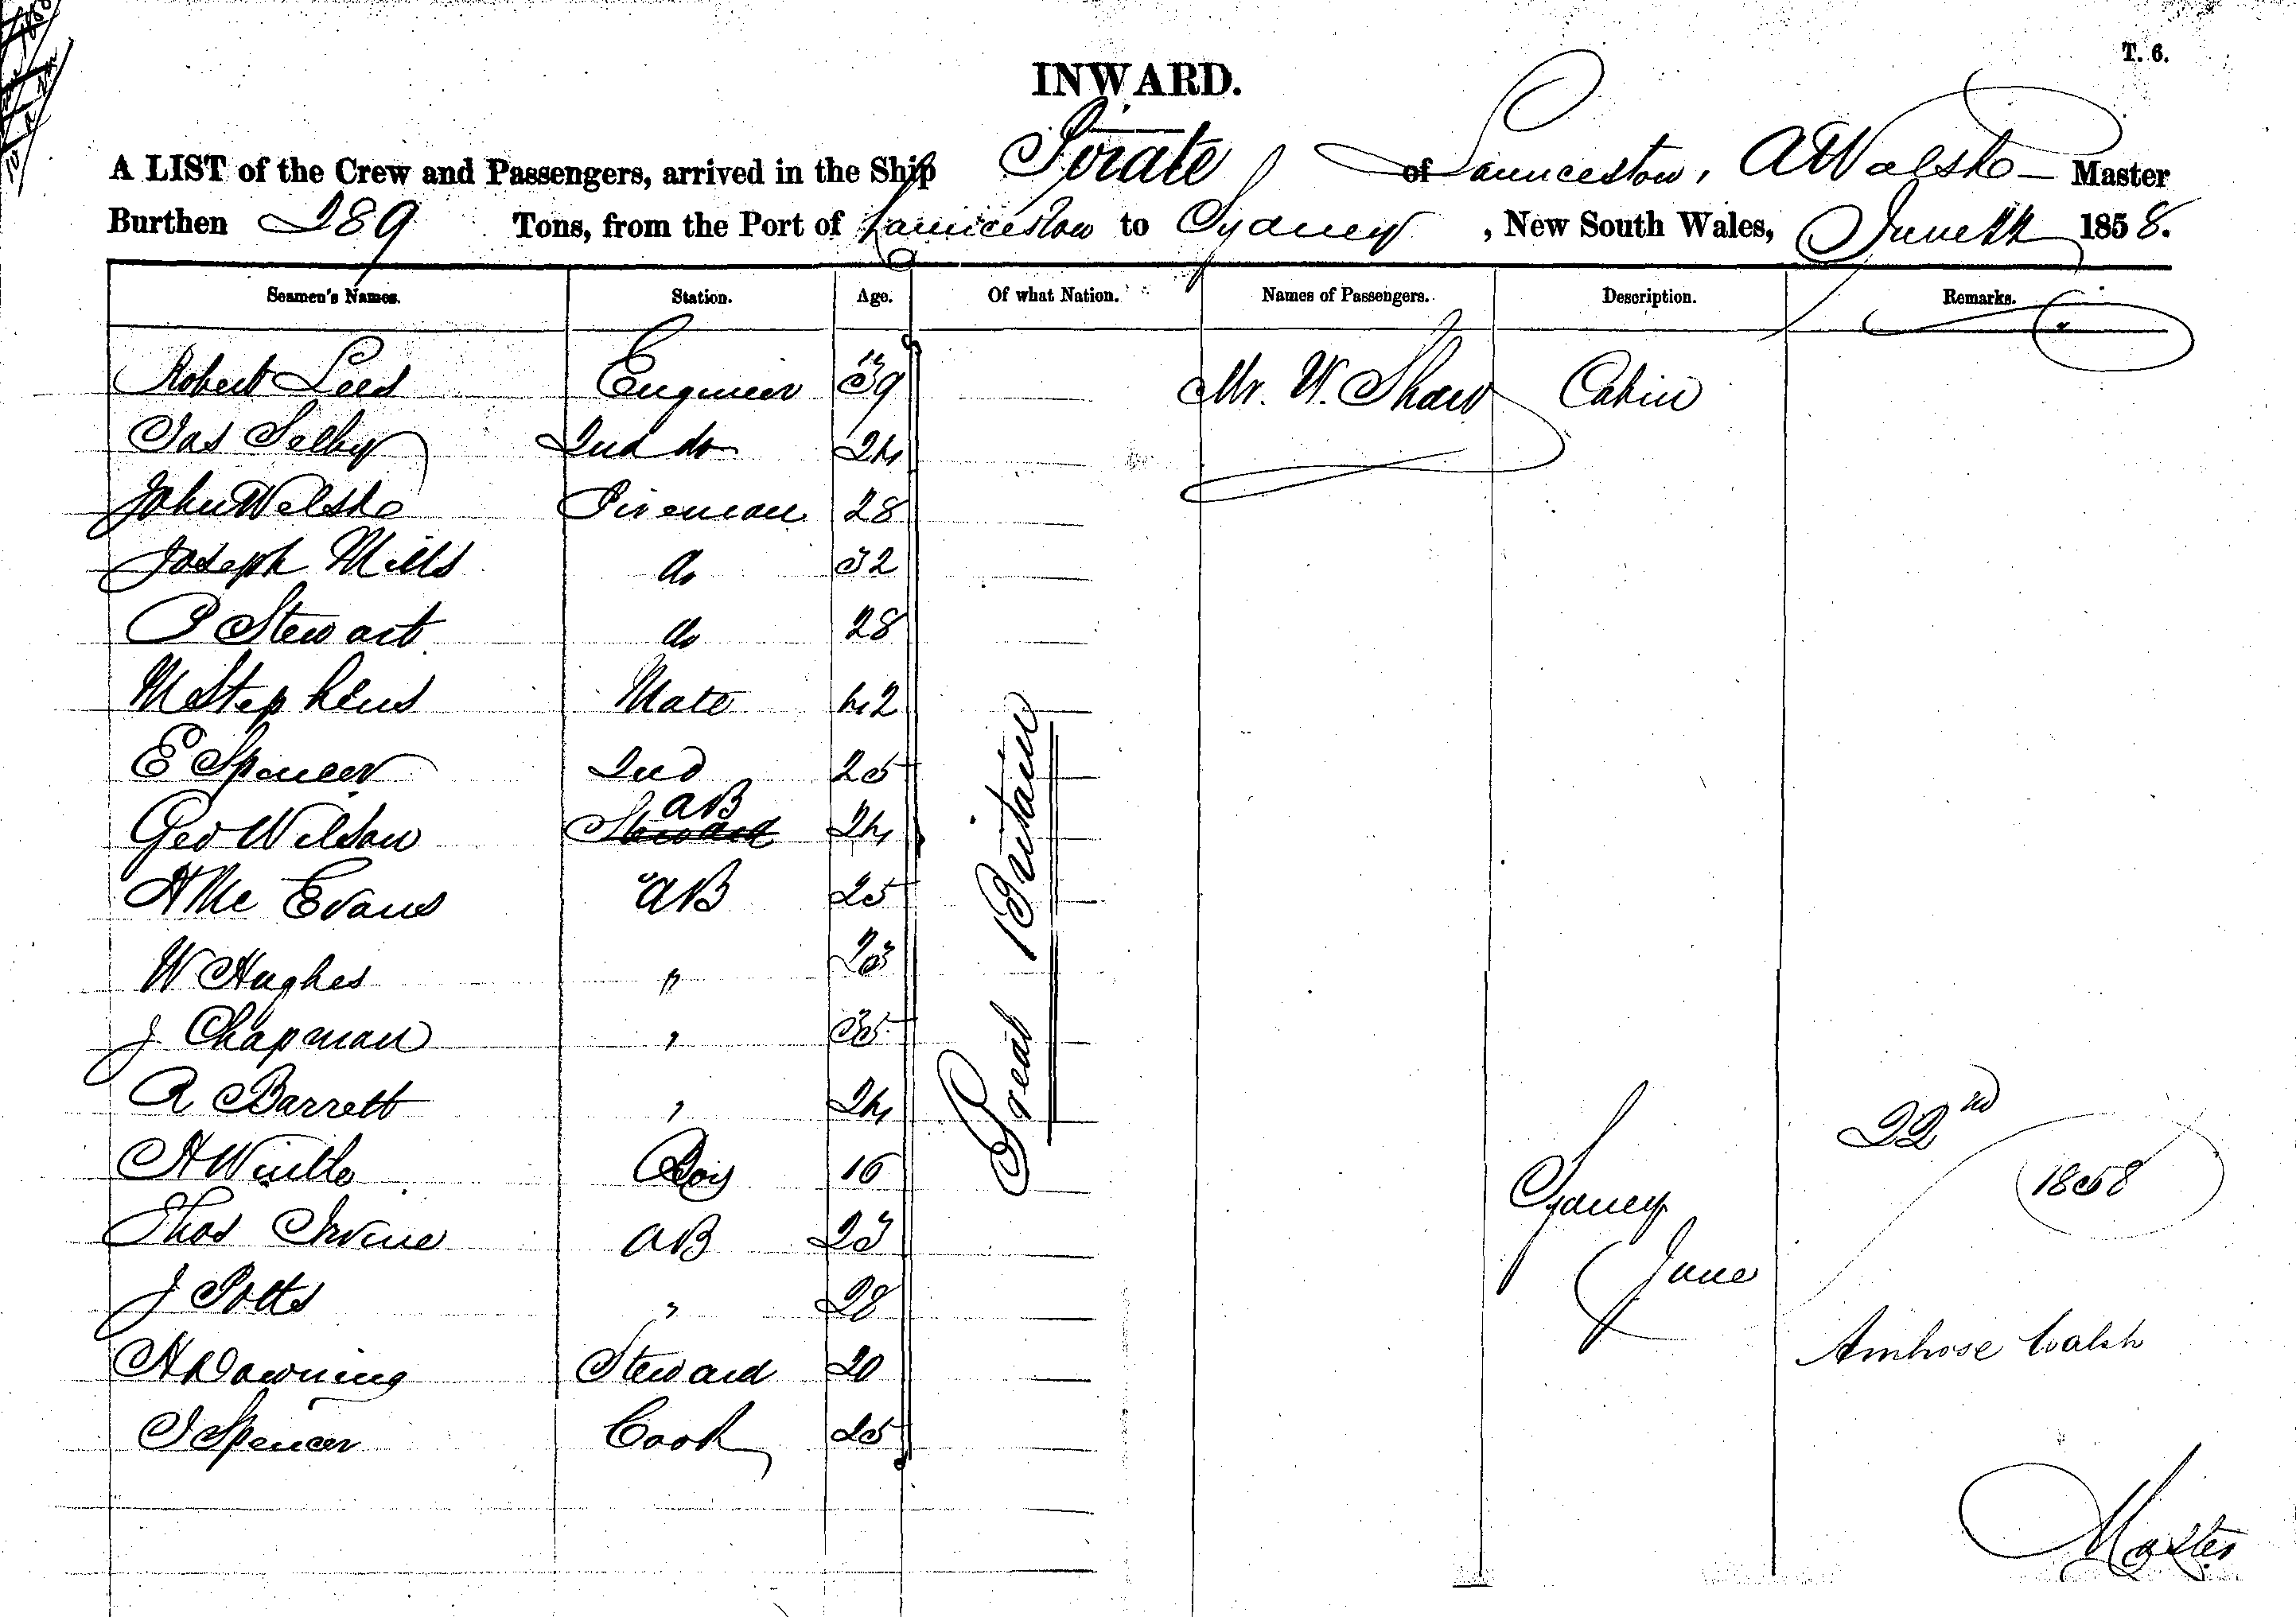 T. 6.
INWARD.
A LIST of the Crew and Passengers, arrived in the Ship Pirate of Launceston, A Walsh Master
Burthen 289 Tons, from the Port of Launceston to Sydney, New South Wales, June 1858.
Seamen's Names. Station. Age. Of what Nation. Names of Passengers. Description. Remarks.
Robert Lees Engineer 39 Mr. W. Shaw Cabin
Jas Selby 2nd do 24
John Welsh Fireman 28
Joseph Mills do 32
P Stewart do 28
M Stephens Mate 42
E Spencer 2nd 25
Geo Wilson Steward AB 24
H Mc Evans AB 25
W Hughes " 23
J Chapman " 35
R Barrett " 24
H Boy 16
Thos Irvine AB 23
J Potts " 28
H Downing Steward 20
J Spencer Cook 25
Great Britain
Sydney
June
22nd
1858
Ambrose Walsh
Master